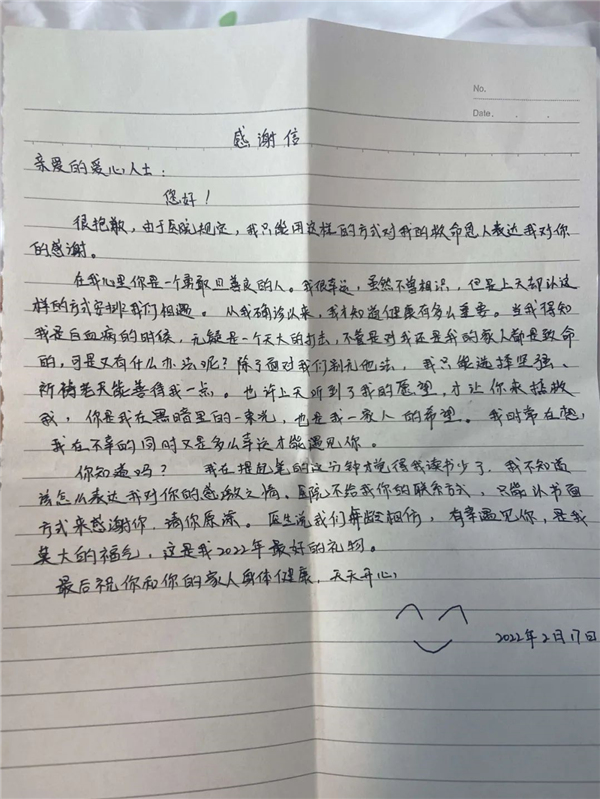 No.
Date. . .
感谢信
亲爱的爱心人士：
您好！
很抱歉，由于医院规定，我只能用这样的方式对我的救命恩人表达我对你
的感谢。
在我心里你是一个勇敢且善良的人。我很幸运，虽然不曾相识，但是上天却以这
样的方式安排我们相遇。从我确诊以来，我才知道健康有多么重要。当我得知
我是白血病的时候，无疑是一个天大的打击，不管是对我还是我的家人都是致命
的，可是又有什么办法呢？除了面对我们别无他法，我只能选择坚强、
祈祷老天能善待我一点。也许上天听到了我的愿望，才让你来拯救
我，你是我在黑暗里的一束光，也是我一家人的希望。我时常在想，
我在不幸的同时又是多么幸运才能遇见你。
你知道吗？我在提起笔的这分钟才觉得我读书少了，我不知道
该怎么表达我对你的感激之情。医院不给我你的联系方式，只能以书面
方式来感谢你，请你原谅。医生说我们年龄相仿，有幸遇见你，是我
莫大的福气，这是我2022年最好的礼物。
最后祝你和你的家人身体健康，天天开心
2022年2月17日